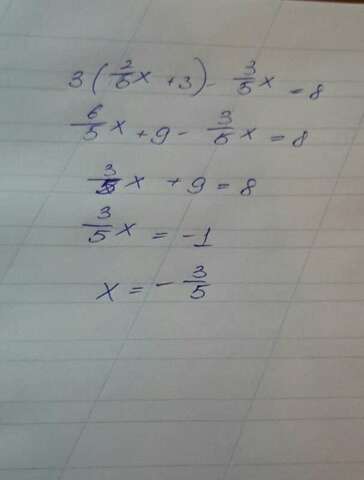 3(2/5x + 3) - 3/5x = 8
6/5x + 9 - 3/5x = 8
3/5x + 9 = 8
3/5x = -1
x = -3/5